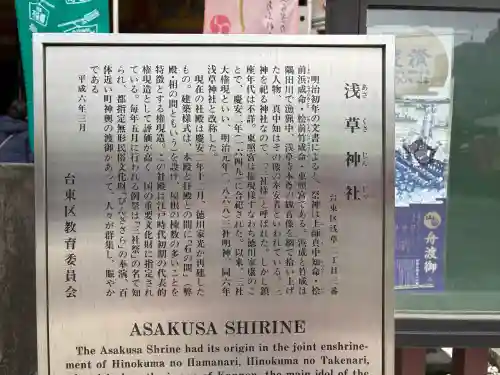 浅草神社
あさ くさ じん じゃ
台東区浅草二丁目三番
明治初年の文書によると、祭神は土師真中知命・桧
前浜成命・桧前竹成命・東照宮である。浜成と竹成は
隅田川で漁猟中、浅草寺本尊の観音像を網で拾い上げ
た人物、真中知はその像の奉安者といわれている。三
神を祀る神社なので、「三社様」と呼ばれた。しかし鎮
座年代は不詳。東照宮は権現様すなわち徳川家康のこ
とで、慶安二年（一六四九）に合祀された。以来、三社
大権現といい、明治元年（一八六八）三社明神、同六年
浅草神社と改称した。
現在の社殿は慶安二年十二月、徳川家光が再建した
もの。建築様式は、本殿と拝殿との間に「石の間」（弊
殿・相の間ともいう）を設け、屋根の棟数の多いことを
特徴とする権現造。この社殿は江戸時代初期の代表的
権現造として評価が高く、国の重要文化財に指定され
ている。毎年五月に行われる例祭は「三社祭」の名で知
られ、都指定無形民俗文化財「びんざさら」の奉演、百
体近い町神輿の渡御があって、人々が群集し、賑やか
である
平成六年三月
台東区教育委員会
ASAKUSA SHRINE
The Asakusa Shrine had its origin in the joint enshrine-
ment of Hinokuma no Hamanari, Hinokuma no Takenari,
舟渡御